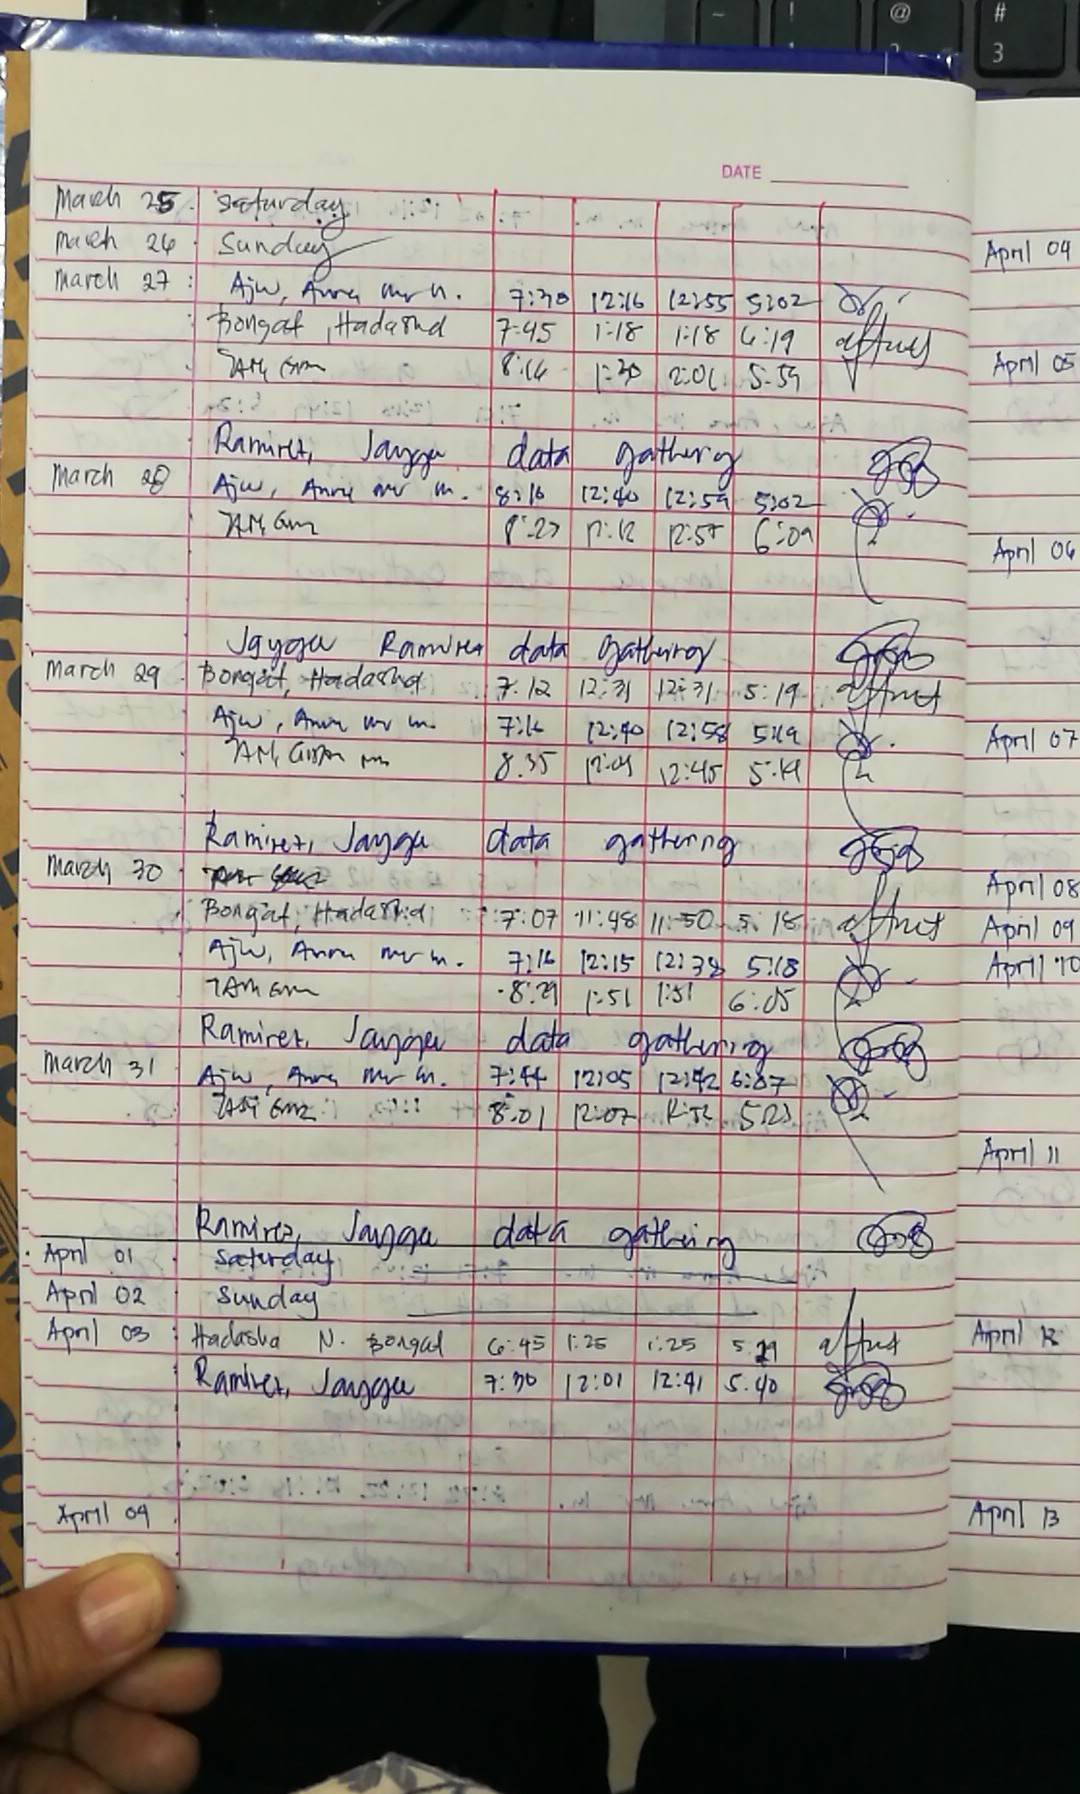 ~ ! @ #
3
DATE
March 25 Saturday
March 26 Sunday
March 27 : Ajw, Anna 7:30 12:16 12:55 5:02
Bongat, Hadasha 7:45 1:18 1:18 6:19
8:16 1:30 2:01 5:59
Ramirez, Jaygee data gathering
March 28 Ajw, 8:16 12:40 12:59 5:02
8:27 12:12 12:57 6:09
Jaygee Ramirez data gathering
March 29 Bongat, Hadasha 7:12 12:31 12:31 5:19
Ajw, 7:16 12:40 12:58 5:19
8:35 12:45 5:19
Ramirez, Jaygee data gathering
March 30
Bongat, Hadasha 7:07 11:48 11:50 5:18
Ajw, 7:16 12:15 12:38 5:18
8:29 1:51 1:51 6:05
Ramirez, Jaygee data gathering
March 31 Ajw, 7:44 12:05 12:42 6:07
8:01 12:07 5:23
Ramirez, Jaygee data gathering
April 01 Saturday
April 02 Sunday
April 03 : Hadasha N. Bongat 6:45 1:25 1:25 5:29
Ramirez, Jaygee 7:30 12:01 12:41 5:40
April 04
April 04
April 05
April 06
April 07
April 08
April 09
April 10
April 11
April 12
April 13